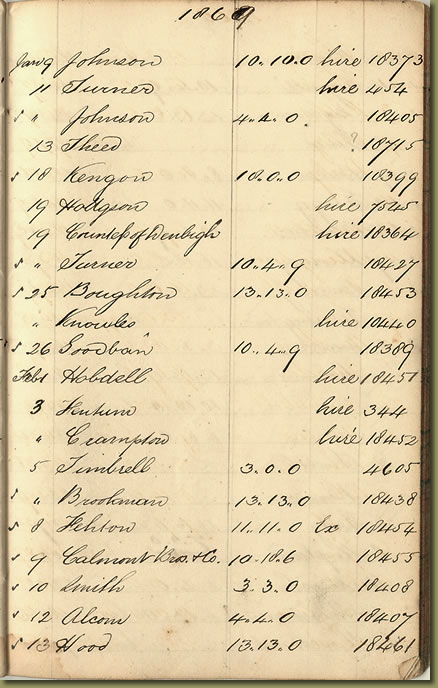 1869
Jan 9 Johnson 10.. 10. 0 hire 18373
11 Turner hire 454
s " Johnson 4.. 4. 0 18405
13 Theed ? 18715
s 18 Kengon 18.. 0.. 0 18399
19 Hodgson hire 7545
19 Countess of Denbigh hire 18364
s " Turner 10.. 4.. 9 18427
s 25 Boughton 13.. 13. 0 18453
" Knowles hire 10440
s 26 Goodban 10.. 4.. 9 18389
Feb 1 Hobdell hire 18451
3 hire 344
" Crampton hire 18452
5 Timbrell 3.. 0. 0 4605
s " Brookman 13.. 13. 0 18438
s 8 11.. 11. 0 Ex 18454
s 9 Calmont Bros. & Co. 10.. 18.. 6 18455
s 10 Smith 3.. 3. 0 18408
s 12 Alcom 4.. 4. 0 18407
s 13 Hood 13.. 13. 0 18461